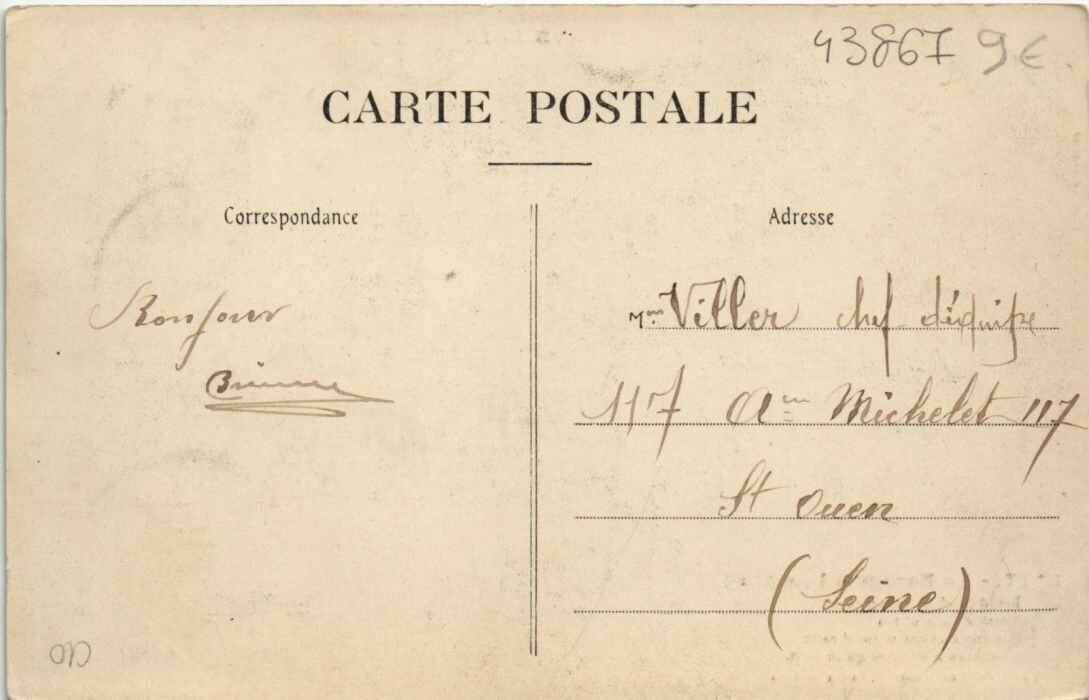 43867 9€
CARTE POSTALE
Correspondance
Adresse
Bonjour
Mon Viller chef d'équipe
117 Aue Michelet 117
St Ouen
(Seine)